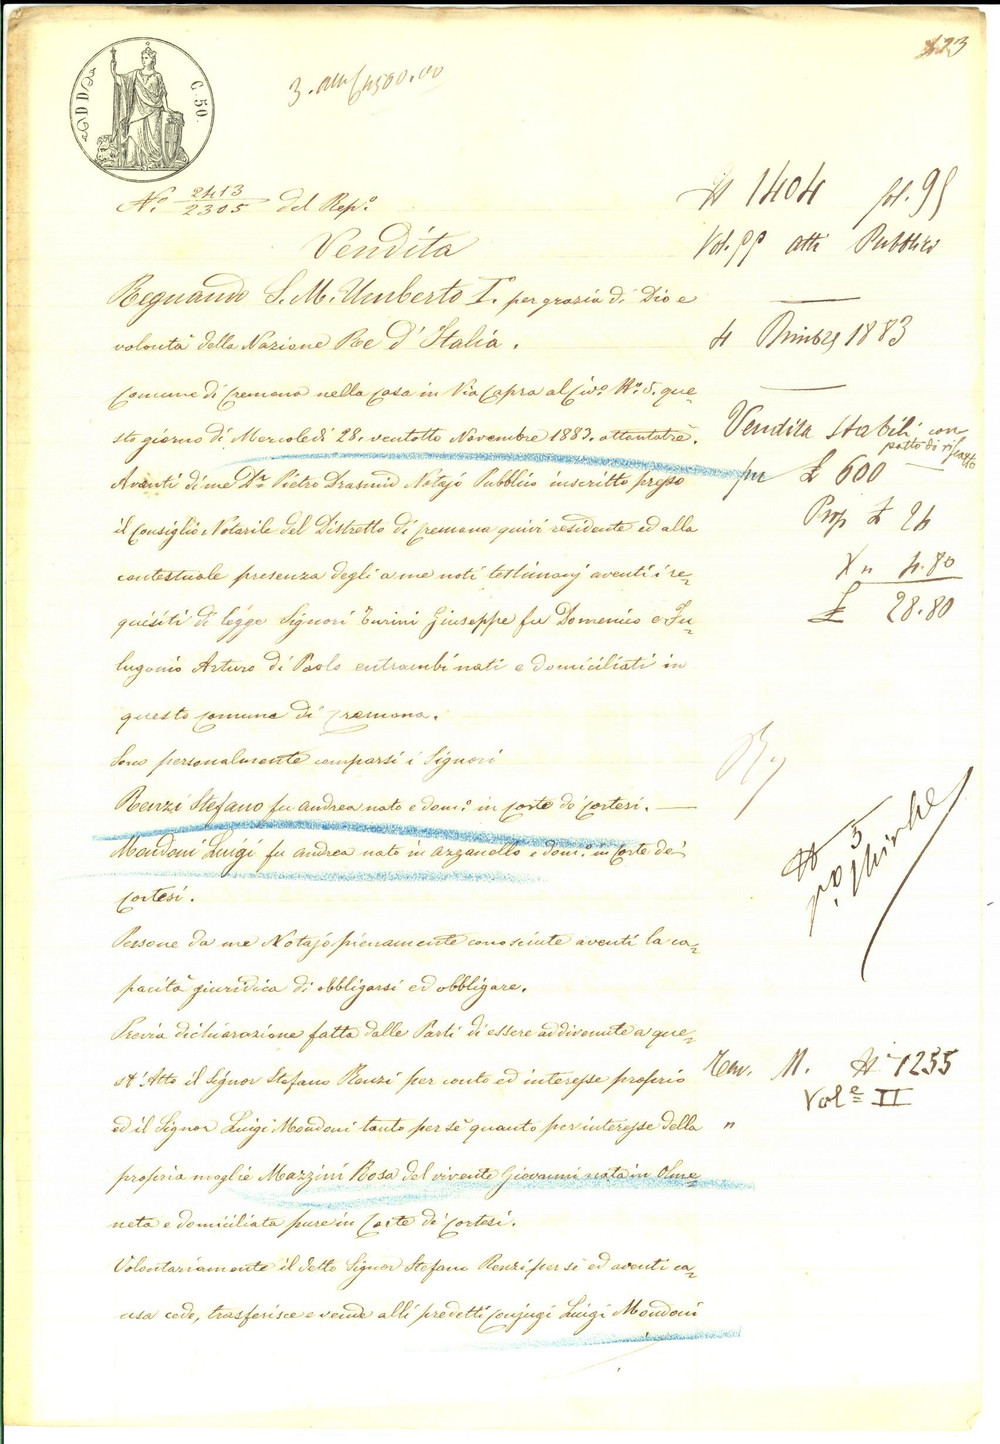 123
C. 50.
N.º 2413/2305 del Rep.º
Vendita
Regnando S. M. Umberto I.º per grazia di Dio e
volontà della Nazione Re d'Italia.
Comune di Cremona nella casa in Via Capra al Civ.º N.º 5. que=
sto giorno di Mercoledì 28. ventotto Novembre 1883. ottantatre.
Avanti di me D.r Pietro Notajo Pubblico inscritto presso
il Consiglio Notarile del Distretto di Cremona quivi residente ed alla
contestuale presenza degli a me noti testimonj aventi i re=
quisiti di legge Signori Turini Giuseppe fu Domenico e Su=
lugonio Arturo di Paolo entrambi nati e domiciliati in
questo Comune di Cremona.
Sono personalmente comparsi i Signori
Renzi Stefano fu Andrea nato e dom.º in Corte de' Cortesi.
Mondoni Luigi fu Andrea nato in Azzanello e dom.º in Corte de'
Cortesi.
Persone da me Notajo pienamente conosciute aventi la ca=
pacità giuridica di obbligarsi ed obbligare.
Previa dichiarazione fatta dalle Parti di essere addivenute a que=
st'Atto il Signor Stefano Renzi per conto ed interesse proprio
ed il Signor Luigi Mondoni tanto per sè quanto per interesse della
propria moglie Mazzini Rosa del vivente Giovanni nata in Olme=
neta e domiciliata pure in Corte de' Cortesi.
Volontariamente il detto Signor Stefano Renzi per sè ed aventi ca=
usa cede, trasferisce e vende alli predetti Conjugi Luigi Mondoni
N 1404 fol. 95
Vol. 99 atti Pubblici
4 Dicembre 1883
Vendita stabili con
patto di riscatto
per £ 600
Prop £ 24
4.80
£ 28.80
N 3
M. N 1255
Vol.e II